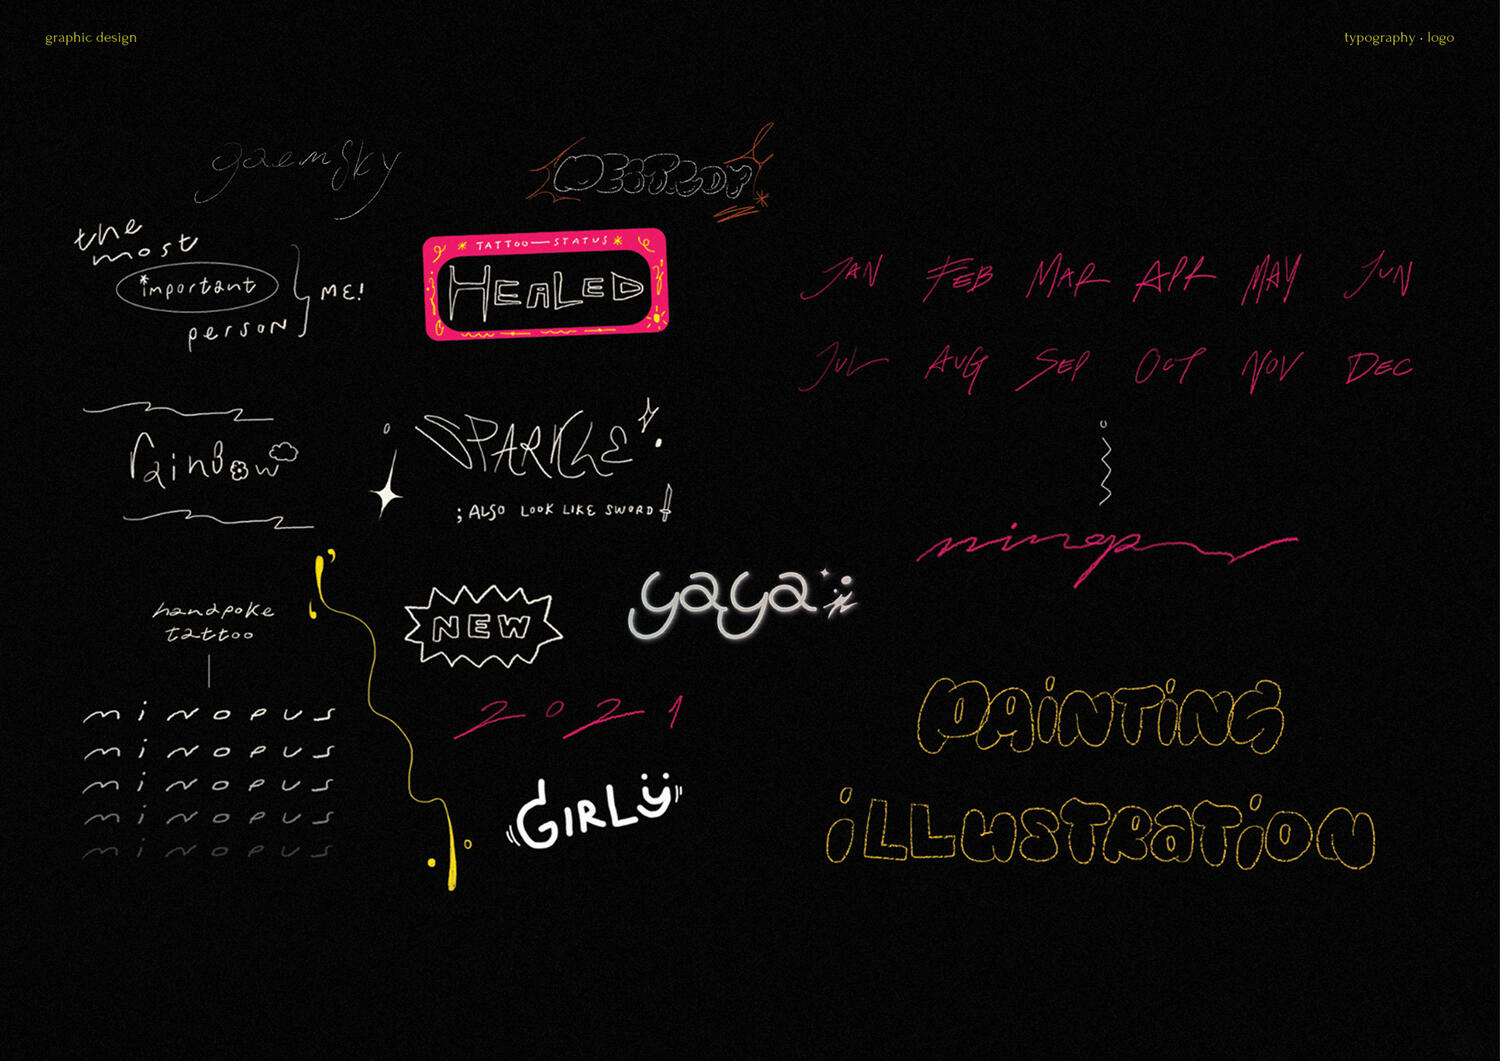 graphic design
typography · logo
gaemsky
DESTROY
the
most
*important
person
ME!
TATTOO — STATUS
HEALED
JAN FEB MAR APR MAY JUN
JUL AUG SEP OCT NOV DEC
rainbow
SPARKLE
; ALSO LOOK LIKE SWORD
ninop
handpoke
tattoo
NEW
yaya
MINOPUS
MINOPUS
MINOPUS
MINOPUS
MINOPUS
2021
GIRLY
PAINTING
iLLUSTRaTiON